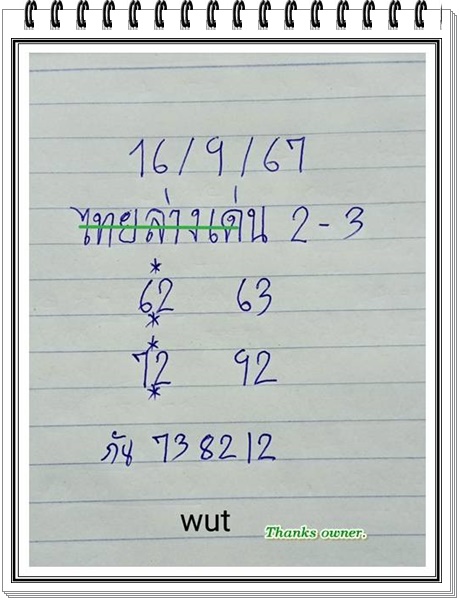 16/9/67
ไทยล่างเด่น 2-3
*
62 63
*
*
72 92
*
ภัย 73 82 12
wut
Thanks owner.